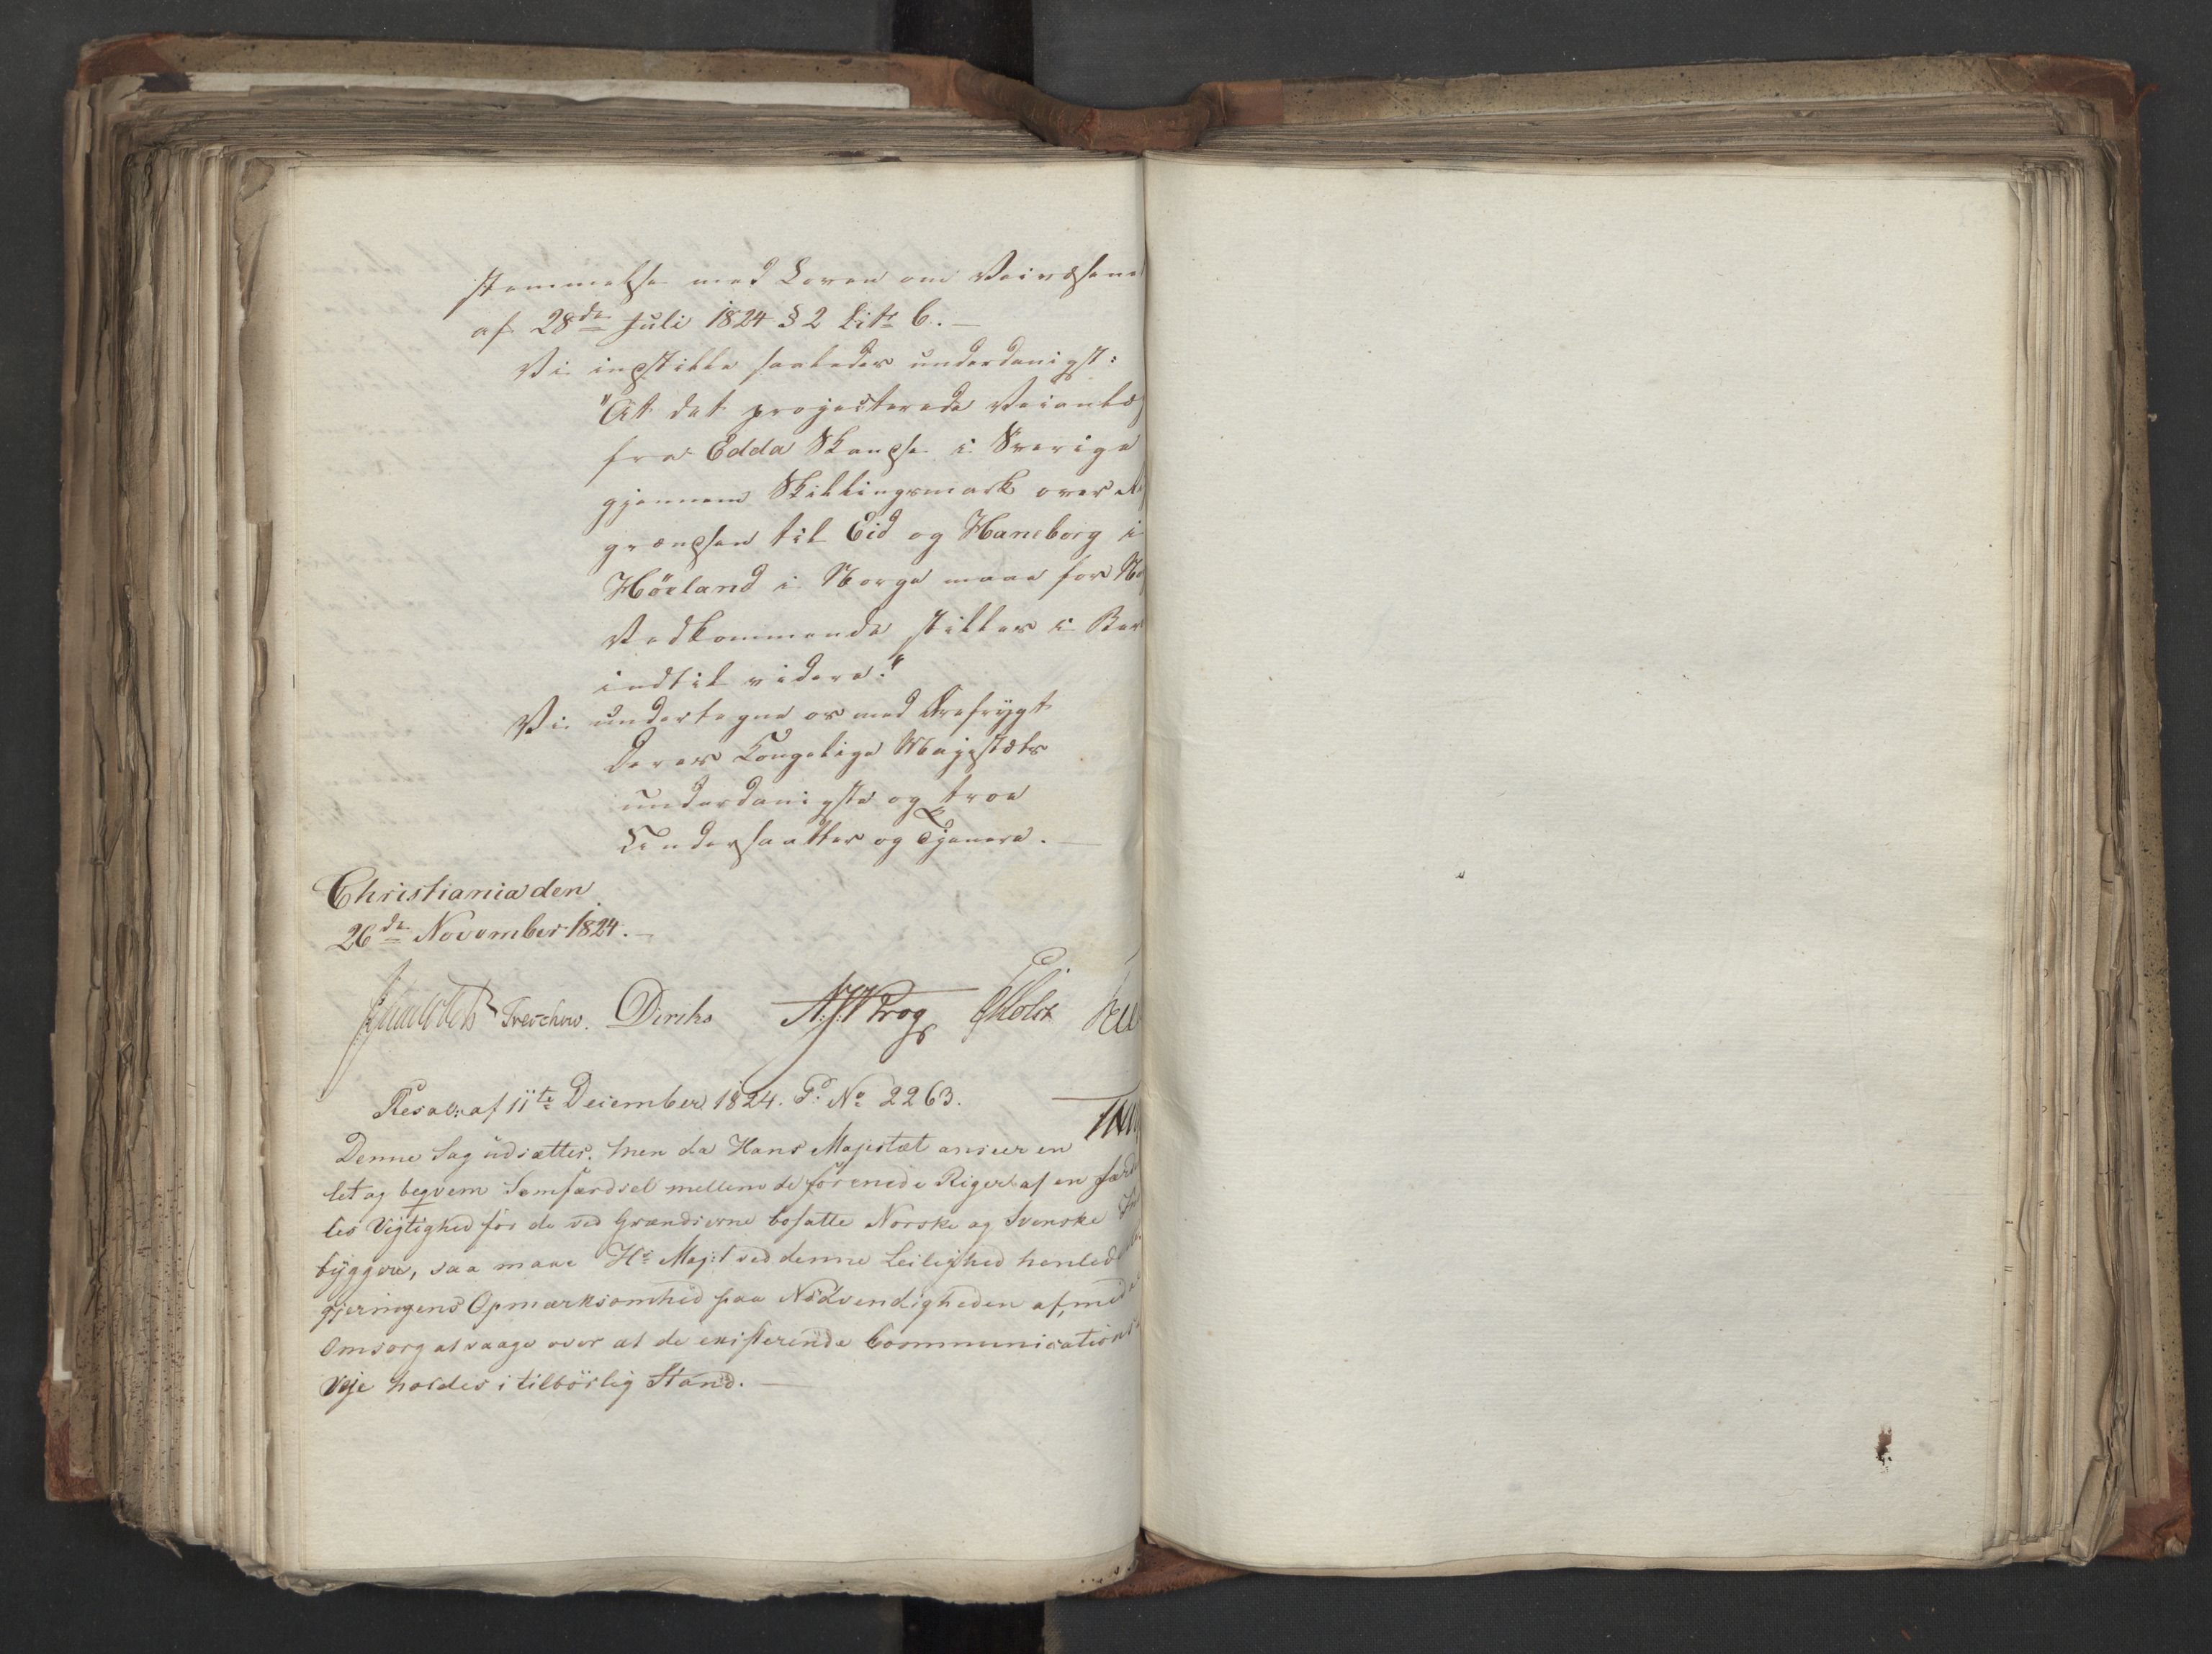 stemmelse med Loven om Veivæsenet
af 28de Juli 1824 § 2 Litr b. —
Vi indstille saaledes underdanigst:
"At det projecterede Veianlæg
fra Edda Skandse i Sverige
gjennem Skillingsmark over
grændsen til Eid og Haneborg i
Höeland i Norge maae for
Vedkommende stilles i
indtil videre."
Vi undertegne os med Ærefrygt
Deres Kongelige Majestæts
underdanigste og troe
Undersaatter og Tjenere. —
Christiania den
26de November 1824. —
Treschow. Diriks Krog Holst
Resol: af 11te December 1824. P: No 2263.
Denne Sag udsættes, men da Hans Majestæt anseer en
let og beqvem Samfærdsel mellem de forenede Riger af en
les Vigtighed for de ved Grændserne bosatte Norske og Svenske
byggere, saa maae Hs Maj:t ved denne Leilighed henlede
gjeringens Opmærksomhed paa Nödvendigheden af, med
Omsorg at vaage over at de existerende Communications
Veje holdes i tilbörlig Stand. —